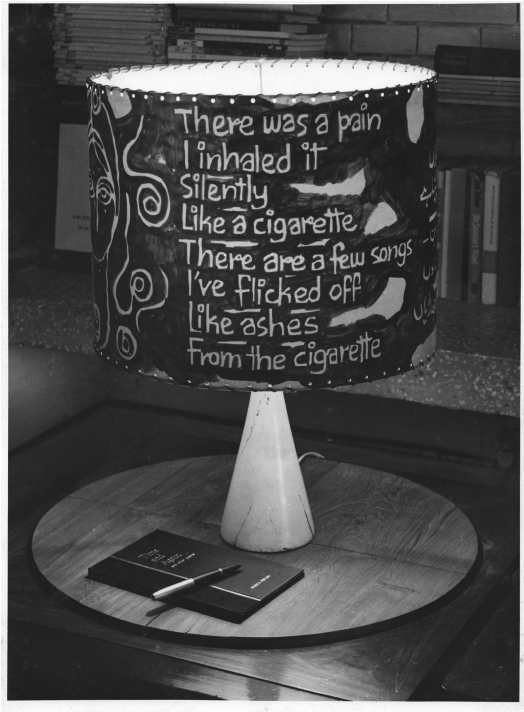 There was a pain
I inhaled it
Silently
Like a cigarette
There are a few songs
I've flicked off
Like ashes
From the cigarette